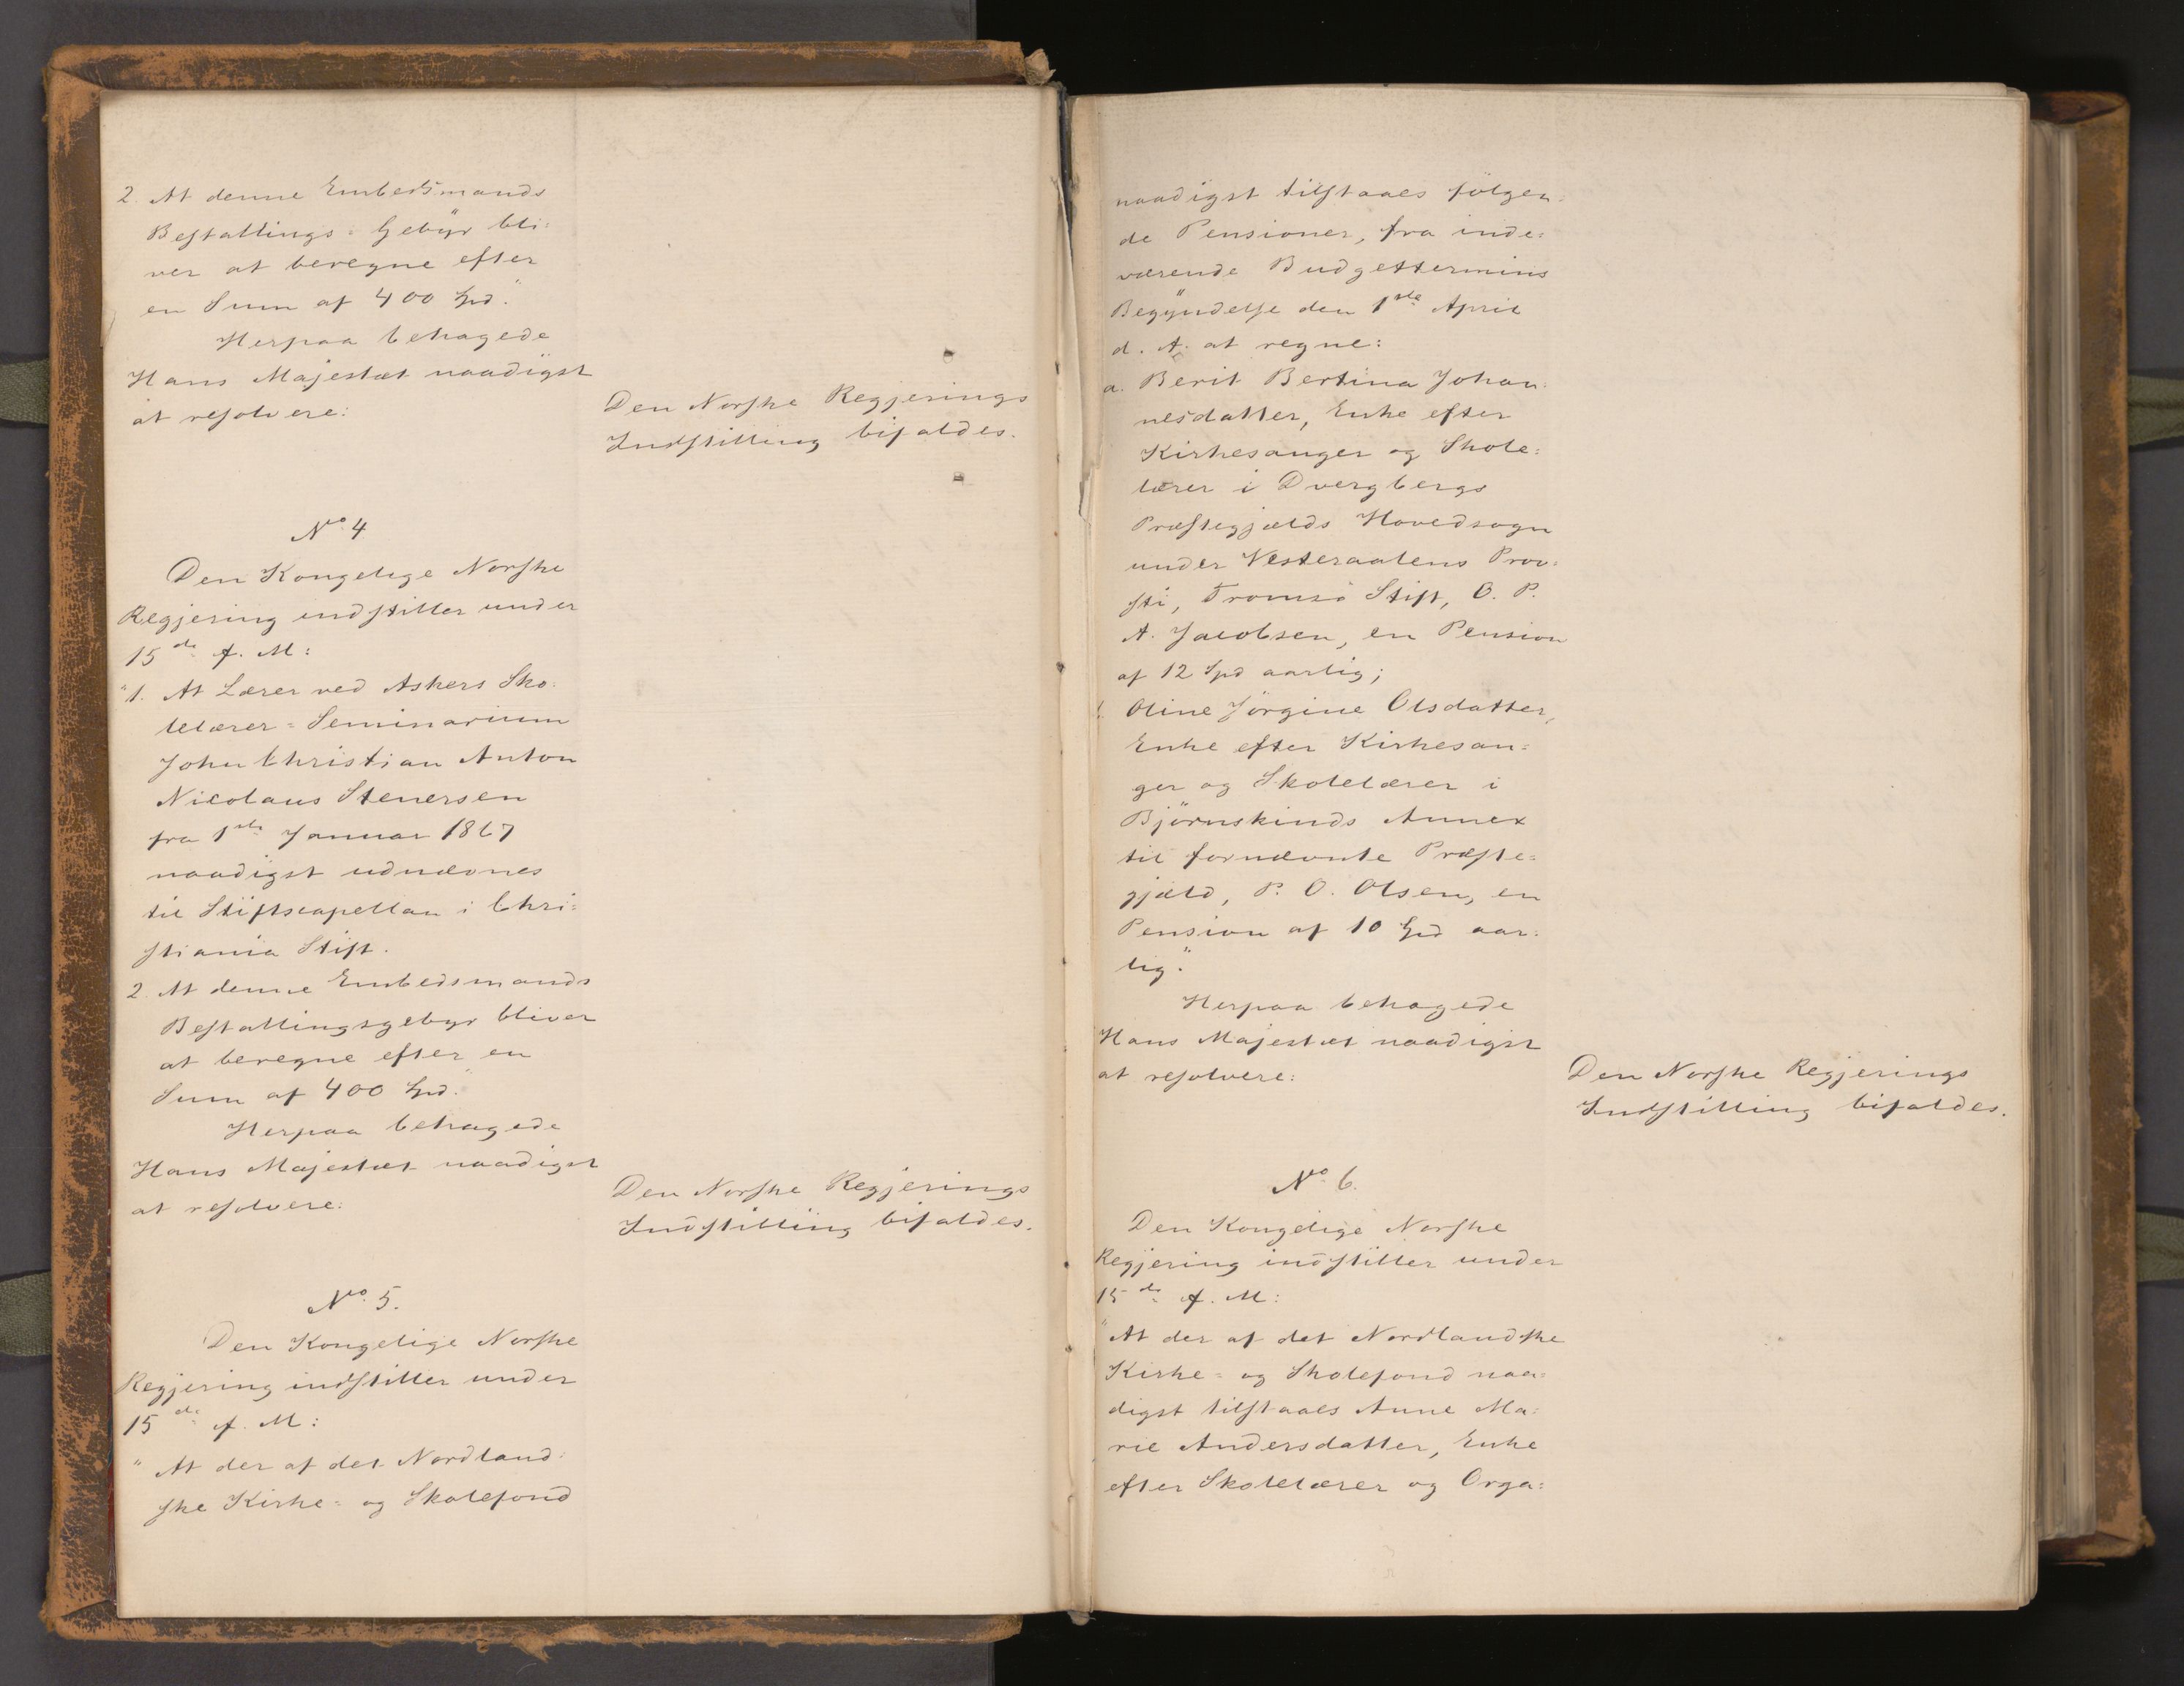 2. At denne Embedsmands
Bestallings=Gebyr bli=
ver at beregne efter
en Sum af 400 Spd."
Herpaa behagede
Hans Majestæt naadigst
at resolvere:
Den Norske Regjerings
Indstilling bifaldes.
No. 4
Den Kongelige Norske
Regjering indstiller under
15de f. M:
"1. At Lærer ved Askers Sko=
lelærer=Seminarium
John Christian Anton
Nicolaus Stenersen
fra 1ste Januar 1867
naadigst udnævnes
til Stiftscapellan i Chri=
stiania Stift.
2. At denne Embedsmands
Bestallingsgebyr bliver
at beregne efter en
Sum af 400 Spd."
Herpaa behagede
Hans Majestæt naadigst
at resolvere:
Den Norske Regjerings
Indstilling bifaldes.
No. 5.
Den Kongelige Norske
Regjering indstiller under
15de f. M:
"At der af det Nordland=
ske Kirke= og Skolefond
naadigst tilstaaes følgen=
de Pensioner, fra inde=
værende Budgettermins
Begyndelse den 1ste April
d. A. at regne:
a. Berit Bertina Johan=
nesdatter, Enke efter
Kirkesanger og Skole=
lærer i Dvergbergs
Præstegjælds Hovedsogn
under Vesteraalens Prov=
sti, Tromsø Stift, O. P.
A. Jacobsen, en Pension
af 12 Spd aarlig;
b. Oline Jørgine Olsdatter,
Enke efter Kirkesan=
ger og Skolelærer i
Bjørnskinds Annex
til fornævnte Præste=
gjæld, P. O. Olsen, en
Pension af 10 Spd aar=
lig."
Herpaa behagede
Hans Majestæt naadigst
at resolvere:
Den Norske Regjerings
Indstilling bifaldes.
No. 6.
Den Kongelige Norske
Regjering indstiller under
15de f. M:
"At der af det Nordlandske
Kirke= og Skolefond naa=
digst tilstaaes Anne Ma=
rie Andersdatter, Enke
efter Skolelærer og Orga=